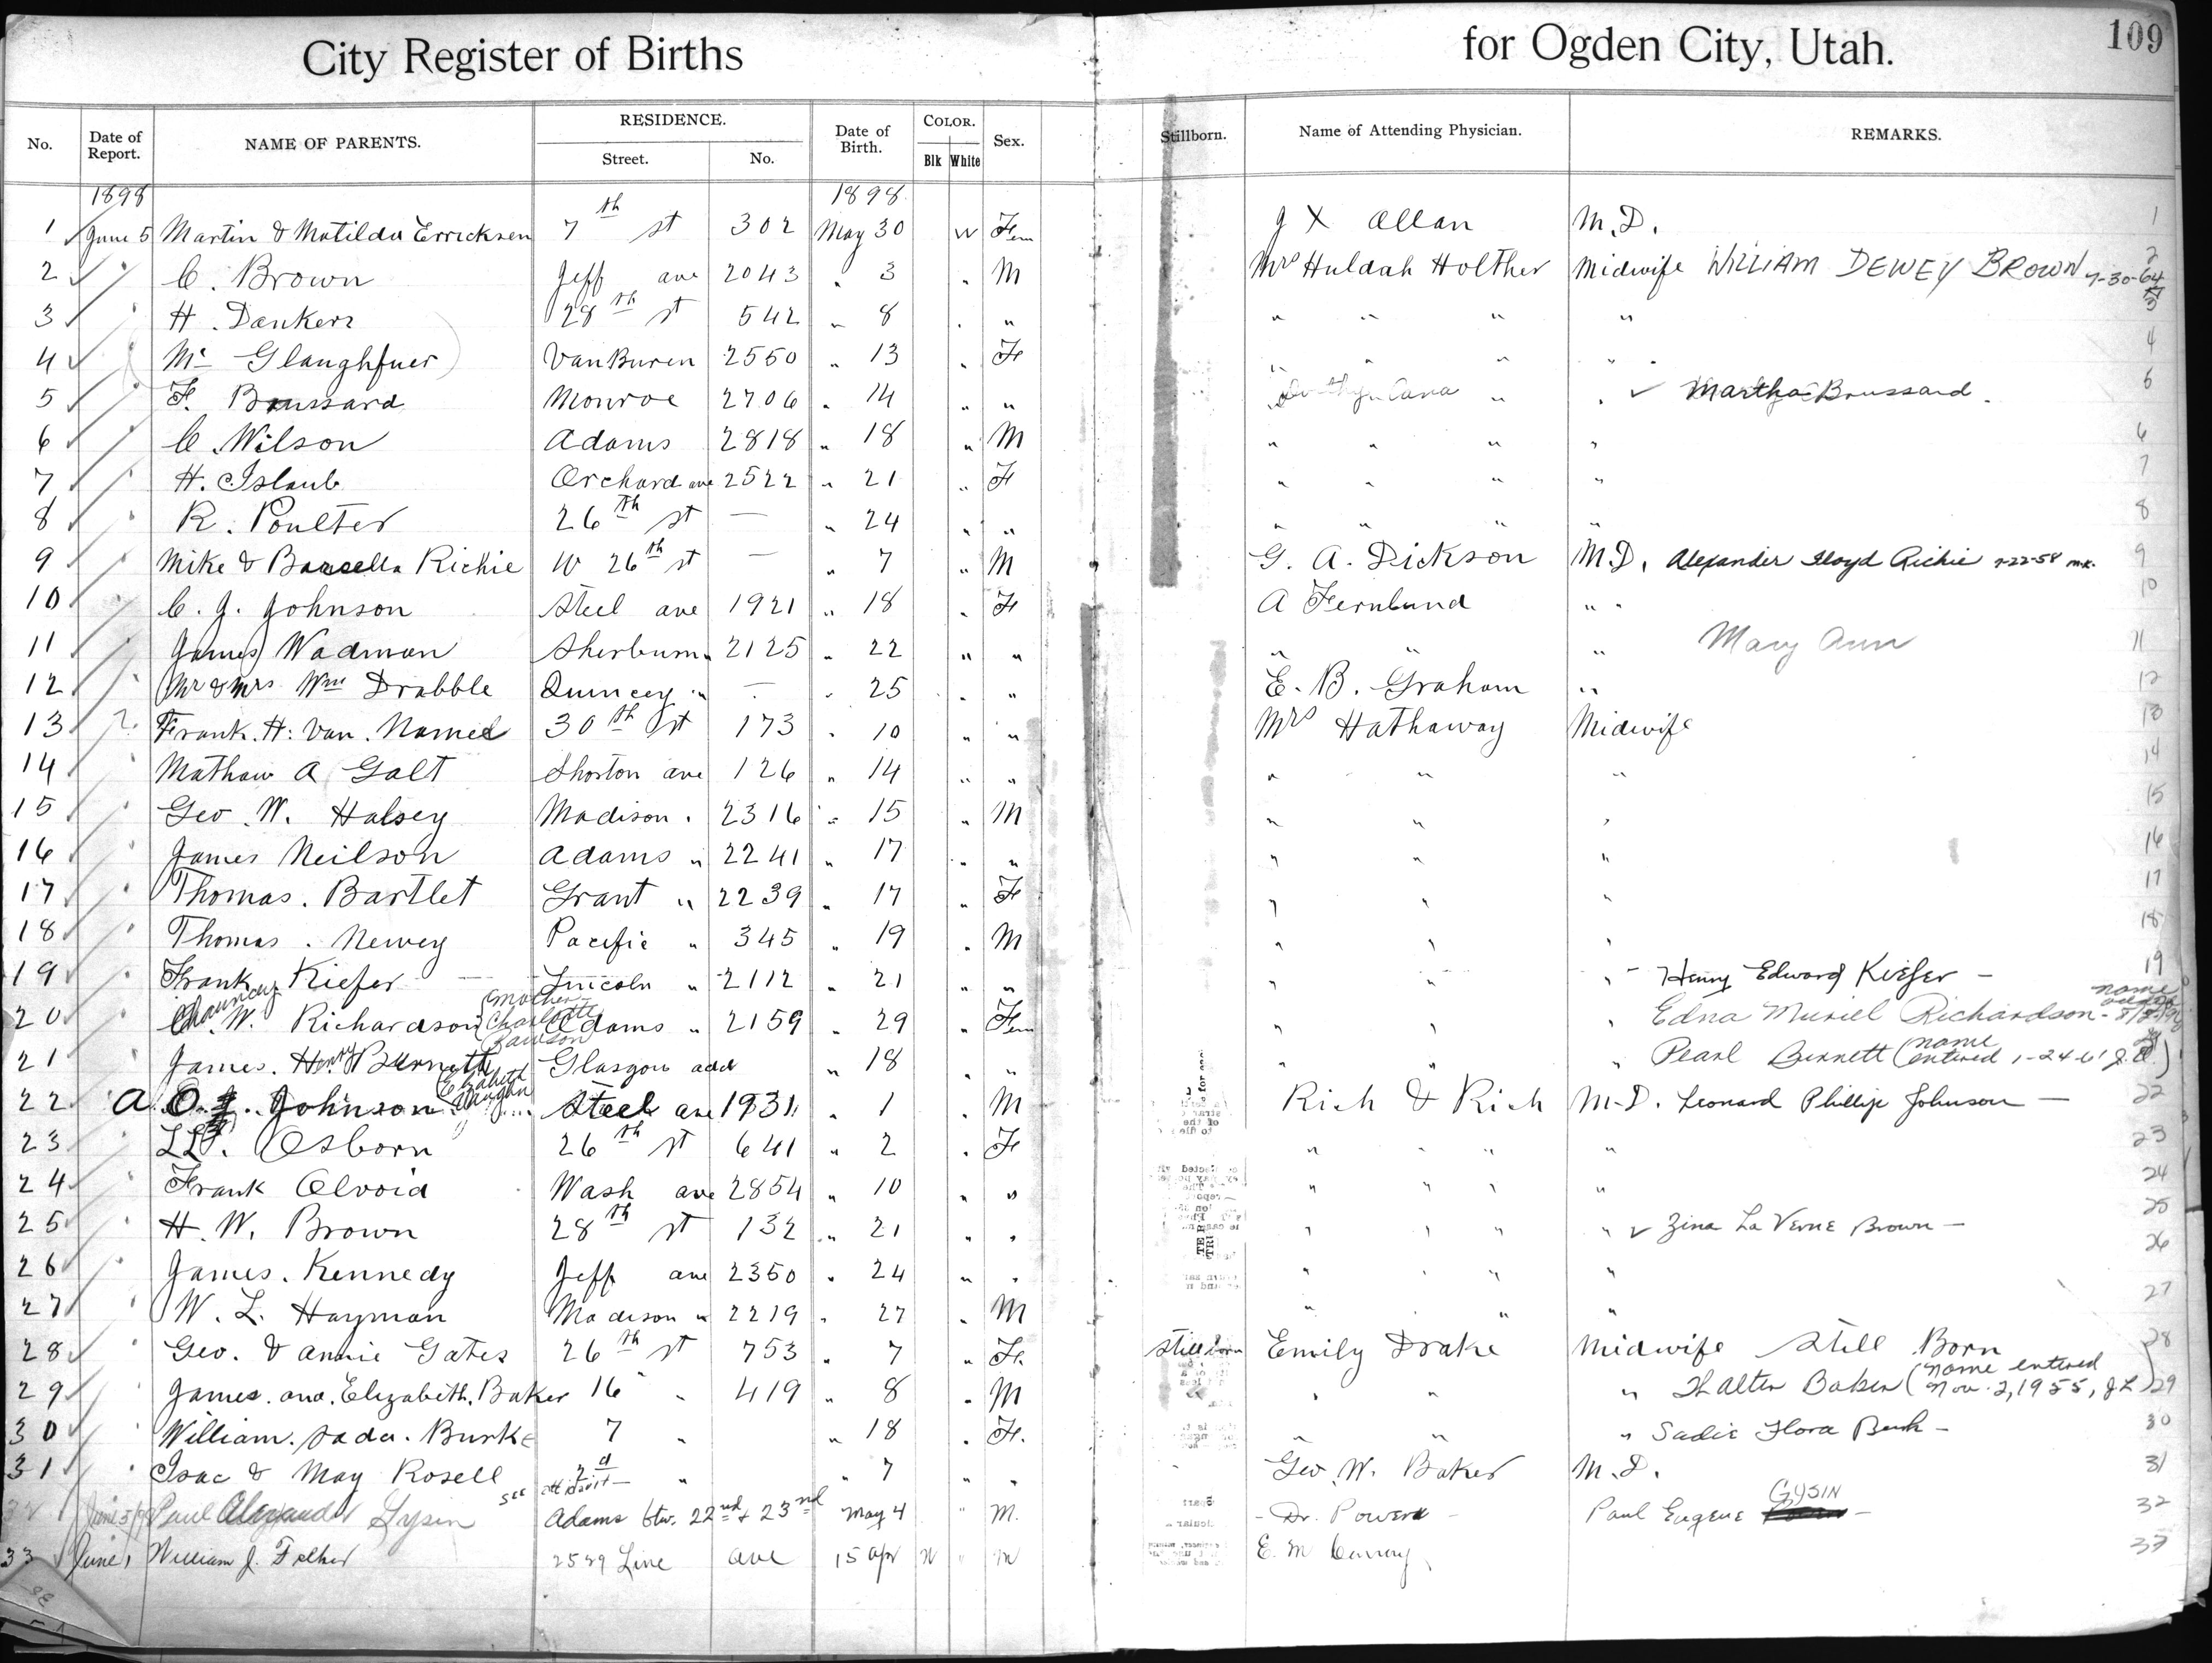 City Register of Births for Ogden City, Utah. 109
No. Date of Report. NAME OF PARENTS. RESIDENCE. Street. No. Date of Birth. COLOR. Blk White Sex. Stillborn. Name of Attending Physician. REMARKS.
1898 1898
1 June 5 Martin & Matilda Erricksen 7th st 302 May 30 W Fem J X Allan M.D. 1
2 " C. Brown Jeff ave 2043 " 3 " M Mrs Huldah Holther Midwife WILLIAM DEWEY BROWN 7-30-64 2
3 " H. Dankers 28th st 542 " 8 " " " " " " 3
4 " Van Buren 2550 " 13 " F " " " " 4
5 " F. Broussard Monroe 2706 " 14 " " " " Martha Broussard. 5
6 " C. Wilson Adams 2818 " 18 " M " " " " 6
7 " H. Islaub Orchard ave 2522 " 21 " F " " " " 7
8 " R. Poulter 26th st — " 24 " " " " " " 8
9 " Mike & Richie W 26th st — " 7 " M G. A. Dickson M.D. Alexander Floyd Richie 9
10 " C. J. Johnson Steel ave 1921 " 18 " F A Fernlund " " 10
11 " James Wadman Sherburn " 2125 " 22 " " " " " Mary Ann 11
12 " Mr & Mrs Wm Drabble Quincey " — " 25 " " E. B. Graham " 12
13 Frank. H. Van. Named 30th st 173 " 10 " " Mrs Hathaway Midwife 13
14 " Mathaw A Galt ave 126 " 14 " " " " " 14
15 " Geo. W. Halsey Madison " 2316 " 15 " M " " " 15
16 " James Neilson Adams " 2241 " 17 " " " " " 16
17 " Thomas. Bartlet Grant " 2239 " 17 " F " " " 17
18 " Thomas. Newey Pacific " 345 " 19 " M " " " 18
19 " Frank Kiefer Lincoln " 2112 " 21 " " " " " Henry Edward Kiefer — 19
20 " Chauncey W. Richardson (mother Charlotte Adams " 2159 " 29 " Fem " " " Edna Muriel Richardson - name
21 " James. Henry Burnett Glasgow add " 18 " " " " " Pearl Bennett (name entered 1-24-61
22 A. O. Johnson Elizabeth Vaughn Steele ave 1931 " 1 " M Rich & Rich M.D. Leonard Phillip Johnson — 22
23 " Osborn 26th st 641 " 2 " F " " " " 23
24 " Frank Alvord Wash ave 2854 " 10 " " " " " " 24
25 " H. W. Brown 28th st 132 " 21 " " " " " " Zina La Verne Brown — 25
26 " James. Kennedy Jeff ave 2350 " 24 " " " " " " 26
27 " W. L. Hayman Madison " 2219 " 27 " M " " " 27
28 " Geo. & Annie Gates 26th st 753 " 7 " F. Still born Emily Drake Midwife Still Born 28
29 " James. and. Elizabeth. Baker 16 " 419 " 8 " M " " " Baker (name entered Nov. 2, 1955, J L) 29
30 " William. Sada. Burke 7 " " 18 " F. " " " Sadie Flora Burk — 30
31 " Isac & May Rosell 2d " " 7 " " Geo. W. Baker M.D. 31
32 June 5/98 Paul Alexander Gysin Adams btw. 22nd + 23rd May 4 " M. Dr. Powers Paul Eugene GYSIN 32
33 June 1 William J. Felker 2529 Linc ave 15 Apr W M E. M Conroy 33